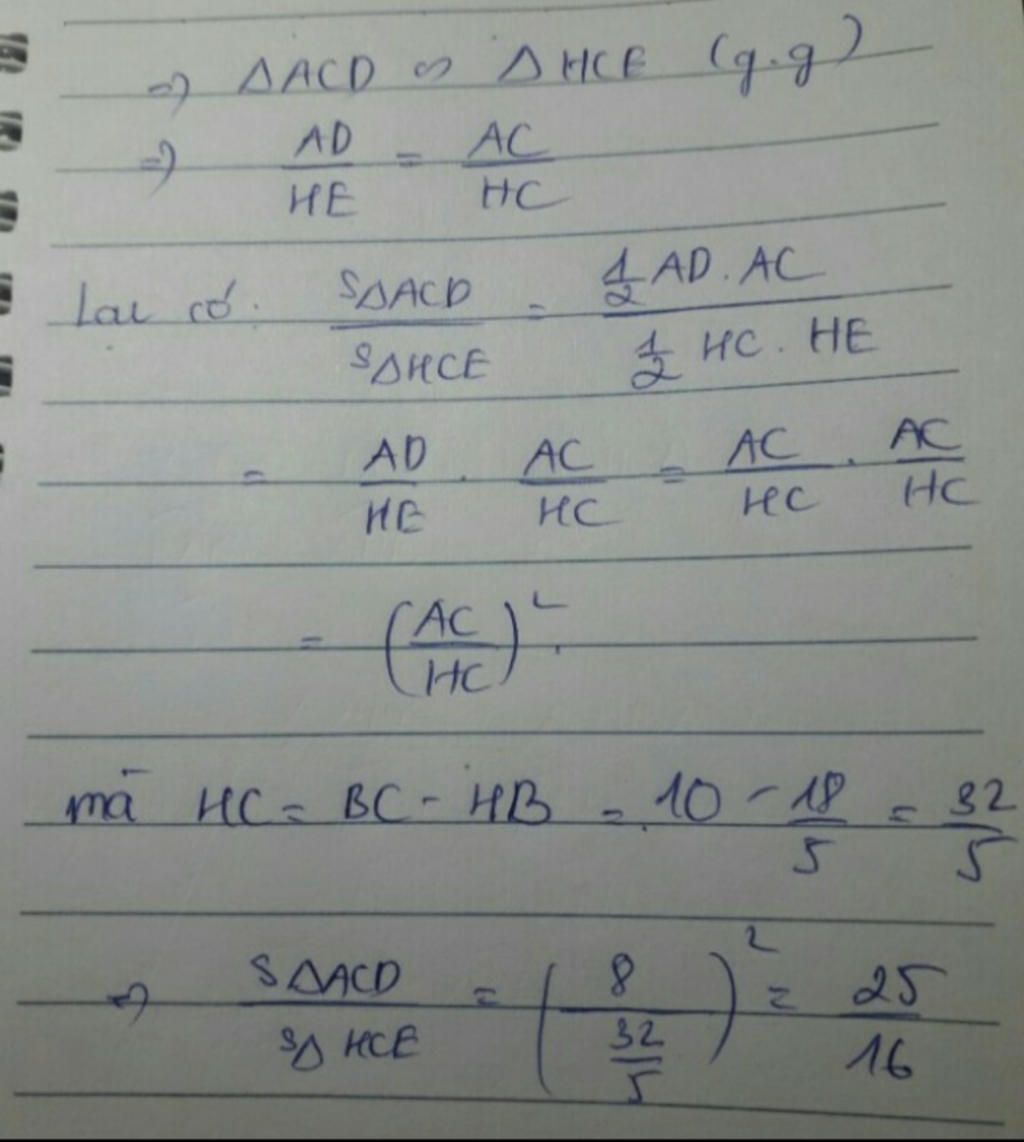 ⇒ ΔACD ∽ ΔHCE (g.g)
⇒ AD/HE = AC/HC
Lại có: SΔACD/SΔHCE = (1/2 AD . AC)/(1/2 HC . HE)
= AD/HE . AC/HC = AC/HC . AC/HC
= (AC/HC)² .
mà HC = BC - HB = 10 - 18/5 = 32/5
⇒ SΔACD/SΔHCE = (8/(32/5))² = 25/16